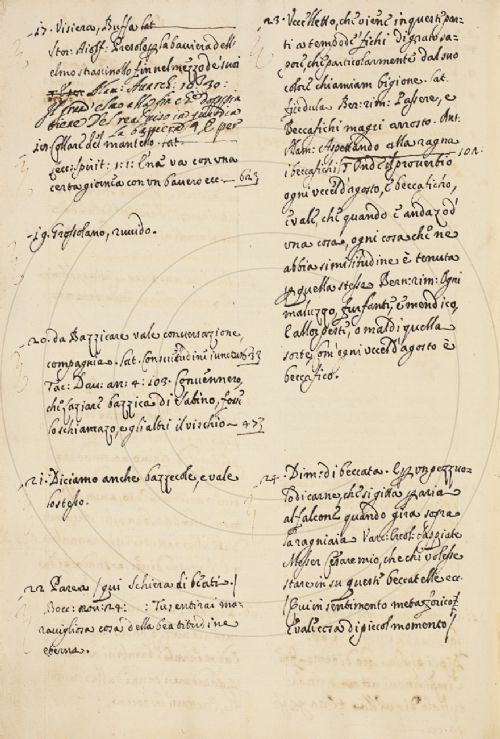 17. Visiera, Buffa lat.
Stor: Aiolf: Presolo p la baviera dell'
elmo strascinollo fin nel mezzo de suoi
18. Collare del mantello. lat.
Cecc: Spirit: 1:1: E' na va con una
certa giornea con un bavero ecc. 623
19. Grossolano, ruvido.
20. da Bazzicare vale conversazione,
compagnia. lat. Consuetudine iunctus 633
Tac: Dav: an: 4: 103. Convennero,
che faziare bazzica di Sabino,
lo schiamazo, e gli altri il vischio 477
21. Diciamo anche bazzecole, e vale
lo stesso.
22 Parea / qui Schiera di beati. /
Bocc: nov: 24: : Tu sentirai ma-
ravigliosa cosa della beatitudine
eterna.
23. Uccelletto, che viene in questi par-
ti a tempo de fichi di grato sa-
pore, che particolarmente dal suo
color chiamiam bigione. lat.
ficedula Ber: rim: Passere, e
Beccafichi magri arrosto. Ant.
Alam: Aspettando alla ragna
i beccafichi. Onde il proverbio 101.
ogni uccel d'agosto, è beccafico,
e vale, che quando è andazo d'
una cosa, ogni cosa che ne
abbia similitudine è tenuta
p quella stessa Bern: rim: Ogni
maluzzo, furfante, e mendico,
e allor peste, o mal di quella
sorte, com ogni uccel d'agosto è
beccafico.
24. Dim: di beccata. E' un pezzuo-
lo di carne, che si gitta p aria
al falcone quando gira sopra
la ragniaia Varc: Ercol: Caspiate
Messer Cesare mio, che chi volesse
stare in su questi beccatelle ecc.
/ Qui in sentimento metaforico /
e vale cosa di piccol momento /